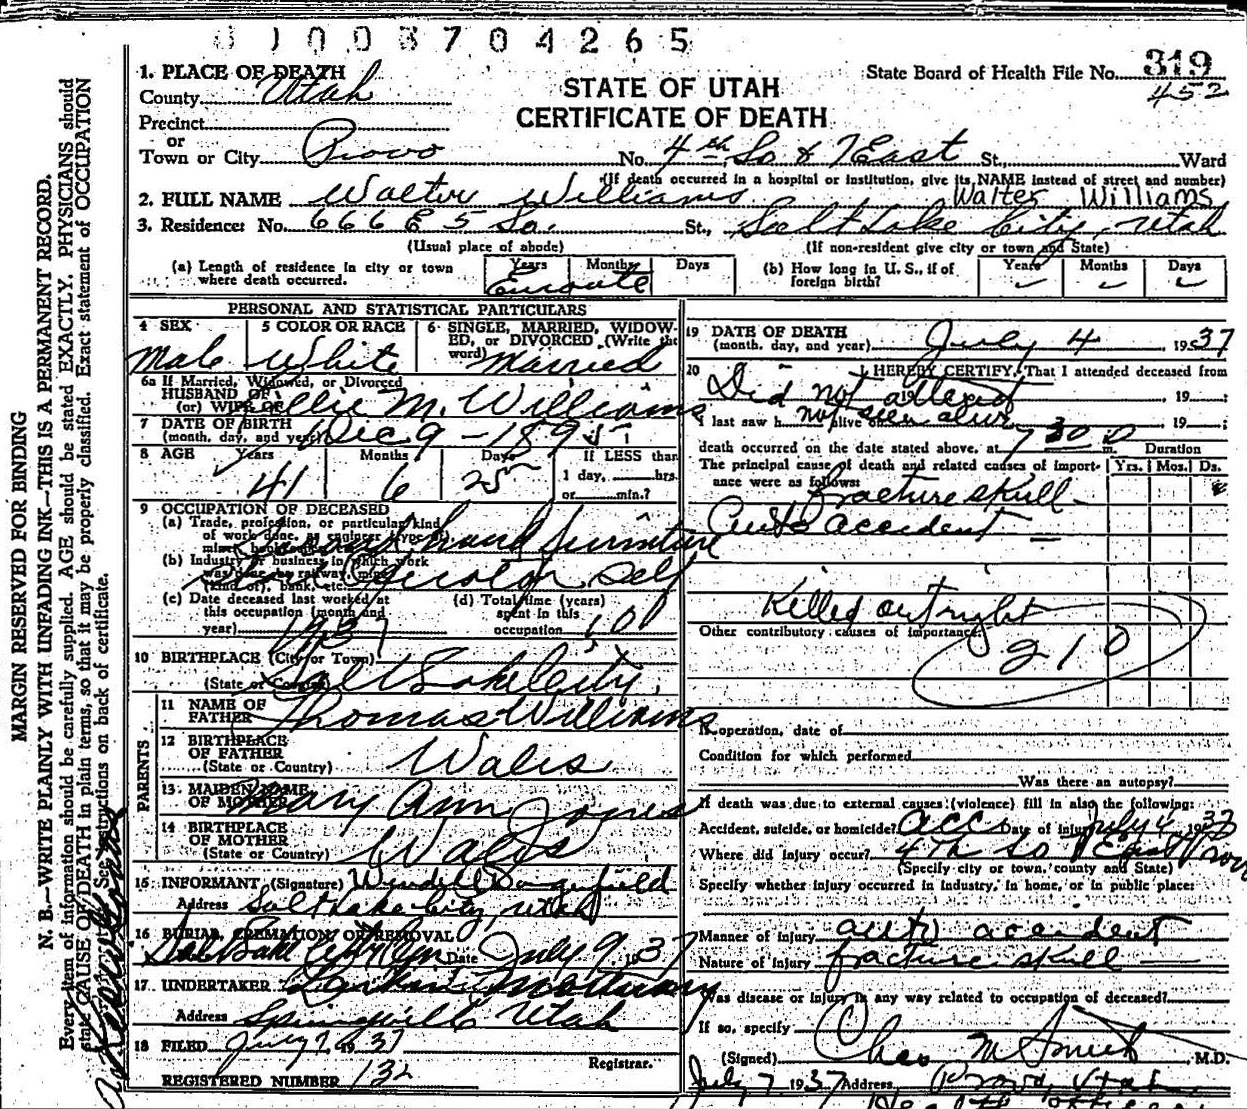 8 1 0 0 3 7 0 4 2 6 5
State Board of Health File No. 319
452
STATE OF UTAH
CERTIFICATE OF DEATH
1. PLACE OF DEATH
County Utah
Precinct
or
Town or City Provo No. 4th So & 1 East St., Ward
(If death occurred in a hospital or institution, give its NAME instead of street and number)
2. FULL NAME Walter Williams Walter Williams
3. Residence: No. 666 E 5 So. St., Salt Lake City, Utah
(Usual place of abode) (If non-resident give city or town and State)
(a) Length of residence in city or town where death occurred. Years Months Days
Enroute
(b) How long in U. S., if of foreign birth? Years Months Days
MARGIN RESERVED FOR BINDING
N. B.—WRITE PLAINLY WITH UNFADING INK—THIS IS A PERMANENT RECORD.
Every item of information should be carefully supplied. AGE should be stated EXACTLY. PHYSICIANS should
state CAUSE OF DEATH in plain terms, so that it may be properly classified. Exact statement of OCCUPATION
See instructions on back of certificate.
PERSONAL AND STATISTICAL PARTICULARS
4 SEX
Male
5 COLOR OR RACE
White
6 SINGLE, MARRIED, WIDOWED, or DIVORCED (Write the word)
Married
6a If Married, Widowed, or Divorced
HUSBAND OF
(or) WIFE OF M. Williams
7 DATE OF BIRTH
(month, day, and year) Dec 9 - 1895
8 AGE Years Months Days If LESS than
41 6 25 1 day, hrs.
or min.?
9 OCCUPATION OF DECEASED
(a) Trade, profession, or particular kind
of work done, hand furniture
(b) Industry or business in which work
Operator Self
(c) Date deceased last worked at
this occupation (month and
year) 1937
(d) Total time (years)
spent in this
occupation 10
10 BIRTHPLACE (City or Town)
(State or Country) Salt Lake City
PARENTS
11 NAME OF
FATHER Thomas Williams
12 BIRTHPLACE
OF FATHER
(State or Country) Wales
13 MAIDEN NAME
OF MOTHER Mary Ann Jones
14 BIRTHPLACE
OF MOTHER
(State or Country) Wales
15 INFORMANT (Signature)
Address Salt Lake City, Utah
16 BURIAL, CREMATION OR REMOVAL
Date July 9 1937
17 UNDERTAKER Mortuary
Address Springville Utah
18 FILED July 7 1937
Registrar.
REGISTERED NUMBER 132
19 DATE OF DEATH
(month, day, and year) July 4 1937
20 I HEREBY CERTIFY, That I attended deceased from
Did not attend , 19 ;
I last saw h alive on not seen alive 19 ;
death occurred on the date stated above, at 7 30 p m. Duration
The principal cause of death and related causes of importance were as follows: Yrs. Mos. Ds.
fracture skull
Auto accident
Killed outright
Other contributory causes of importance:
210
If operation, date of
Condition for which performed
Was there an autopsy?
If death was due to external causes (violence) fill in also the following:
Accident, suicide, or homicide? acc Date of injury July 4 1937
Where did injury occur? 4th So 1 East Provo
(Specify city or town, county and State)
Specify whether injury occurred in industry, in home, or in public place:
Manner of Injury auto accident
Nature of Injury fracture skull
Was disease or injury in any way related to occupation of deceased?
If so, specify
(Signed) Chas M Smith M.D.
July 7 1937 Address Provo, Utah